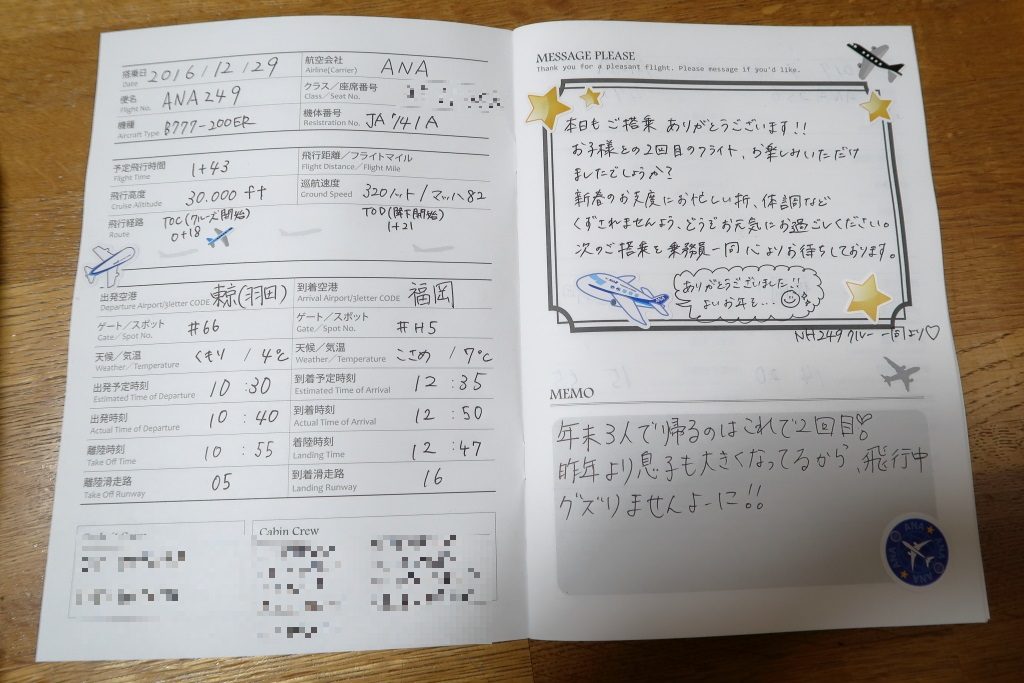 搭乗日 Date 2016/12/29
航空会社 Airline(Carrier) ANA
便名 Flight No. ANA249
クラス／座席番号 Class／Seat No.
機種 Aircraft Type B777-200ER
機体番号 Resistration No. JA741A
予定飛行時間 Flight Time 1+43
飛行距離／フライトマイル Flight Distance／Flight Mile
飛行高度 Cruise Altitude 30.000 ft
巡航速度 Ground Speed 320ノット/マッハ82
飛行経路 Route TOC(クルーズ開始) 0+18
TOD(降下開始) 1+21
出発空港 Departure Airport/3letter CODE 東京(羽田)
到着空港 Arrival Airport/3letter CODE 福岡
ゲート／スポット Gate／Spot No. #66
ゲート／スポット Gate／Spot No. #H5
天候／気温 Weather／Temperature くもり / 4℃
天候／気温 Weather／Temperature こさめ / 7℃
出発予定時刻 Estimated Time of Departure 10:30
到着予定時刻 Estimated Time of Arrival 12:35
出発時刻 Actual Time of Departure 10:40
到着時刻 Actual Time of Arrival 12:50
離陸時刻 Take Off Time 10:55
着陸時刻 Landing Time 12:47
離陸滑走路 Take Off Runway 05
到着滑走路 Landing Runway 16
Cabin Crew
MESSAGE PLEASE
Thank you for a pleasant flight. Please message if you'd like.
本日もご搭乗 ありがとうございます!!
お子様との2回目のフライト、お楽しみいただけ
ましたでしょうか?
新春のお支度にお忙しい折、体調など
くずされませんよう、どうぞお元気にお過ごしください。
次のご搭乗を乗務員一同心よりお待ちしております。
ありがとうございました!!
よいお年を…
NH249クルー 一同より♡
MEMO
年末3人で帰るのはこれで2回目!
昨年より息子も大きくなってるから、飛行中
グズりませんよーに!!
ANA
ANA
ANA